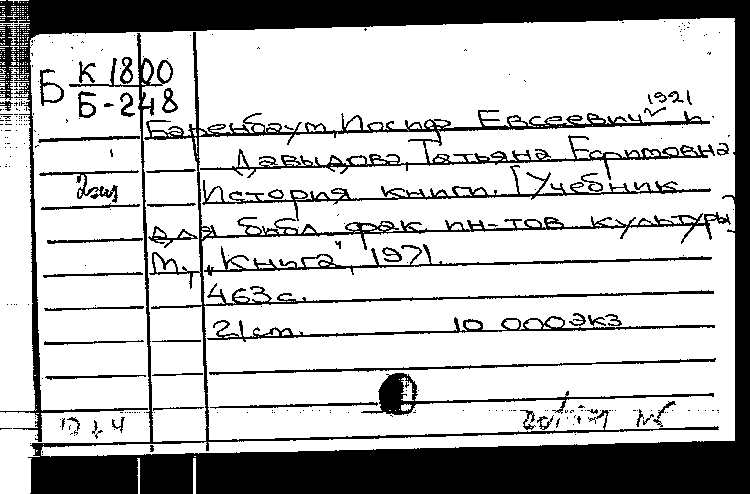 Б К 1800
Б-248
1921
Баренбаум, Иосиф Евсеевич и
Давыдова, Татьяна Ефимовна.
2 экз
История книги. [Учебник
для библ. фак ин-тов культуры]
М., "Книга", 1971.
463 с.
21 см. 10 000 экз